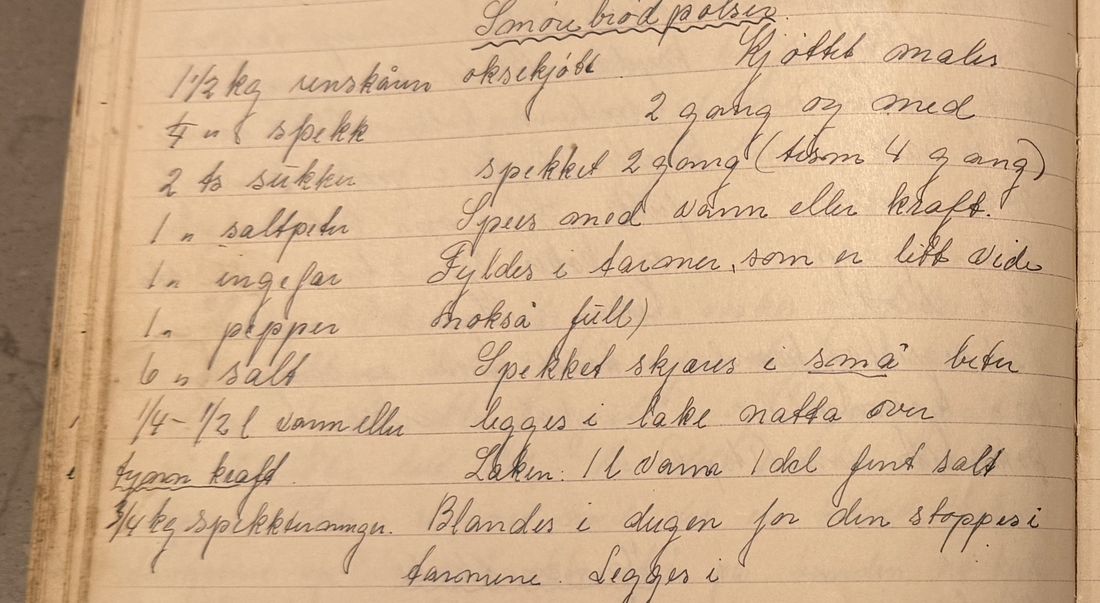 Smörebrödpölser.
1 1/2 kg renskåren oksekjött
" spekk
2 ts sukker
1 " saltpeter
1 " ingefær
1 " pepper
6 " salt
1/4 - 1/2 l vann eller
tynn kraft.
3/4 kg spekkterninger.
Kjøttet males
2 gang og med
spekket 2 gang (tilsam 4 gang)
Spees med vann eller kraft.
Fyldes i tarmer, som er litt vide
(nokså full)
Spekket skjæres i små beter
legges i lake natta over
Laken: 1 l vann 1 del fint salt
Blandes i deigen før den stoppes i
tarmene. Legges i